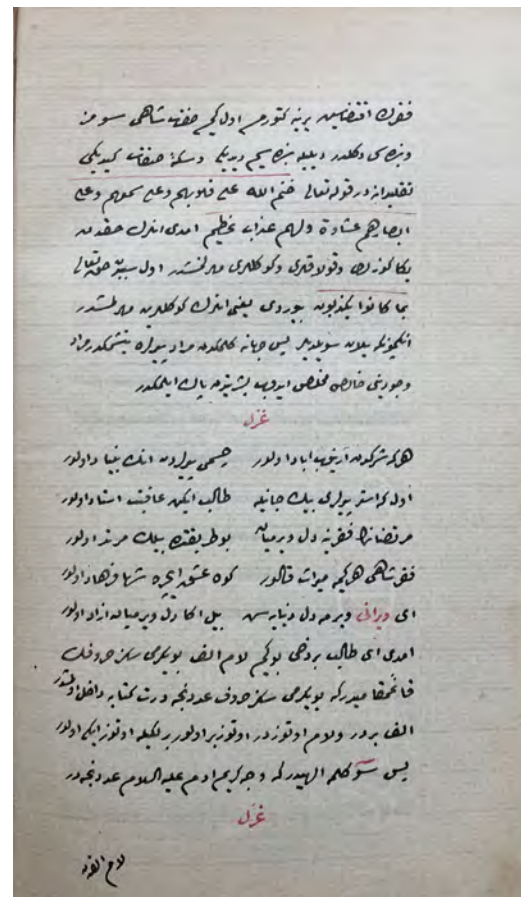 فقرك اقتضاسن يرينه كتورمز اول كم حقه شاهى سومز
وبزه كى دكلدر ديليله بزه يم ديديكى وسكه صفات كيديكى
تقليدانه در قوله تعالى ختم الله على قلوبهم وعلى سمعهم وعلى
ابصارهم غشاوة ولهم عذاب عظيم امدى انلرك حقدن
يكا كوزلرى وقولاقلرى وكوكللرى مهرلنمشدر اول سببدن حق تعالى
بما كانوا يكذبون بيوردى يعنى انلرك كوكللرين مهرلمشدر
انكيچونكه يلان سويلديلر پس جهانه كلمكدن مراد يوله يتشمكدر مراد
وجودينى خالص مخلص ايدوب بشريتدن پاك ايلمكدر
غزل
هركه شركدن آرينوب اباد اولور جسمى يولردن انك بنياد اولور
اول كه استر يولرى بيك جانيله طالب ايكن عاقبت استاد اولور
مرتضانك فقرينه دل ويرميان بو طريقتده بيلك مرتد اولور
فقر شاهى هر كيمه ميراث قالور كوه عشق ايچره شها فرهاد اولور
اى ويرانى ويرمه دل دنيايه سن بيل اكا دل ويرميان ازاد اولور
امدى اى طالب بر دخى بو كيم لام الف بو يكرمى سكز حروفك
قائممقاميدر كه بو يكرمى سكز حروف عددنجه درت كتابه داخل اولمشدر
الف بردر ولام اوتوزدر اوتوز بر اولور بر نكيله اوتوز ايكى اولور
پس سى و دو كلمه الهيدر كه وجه كريم ادم عليه السلام عددنجه در
غزل